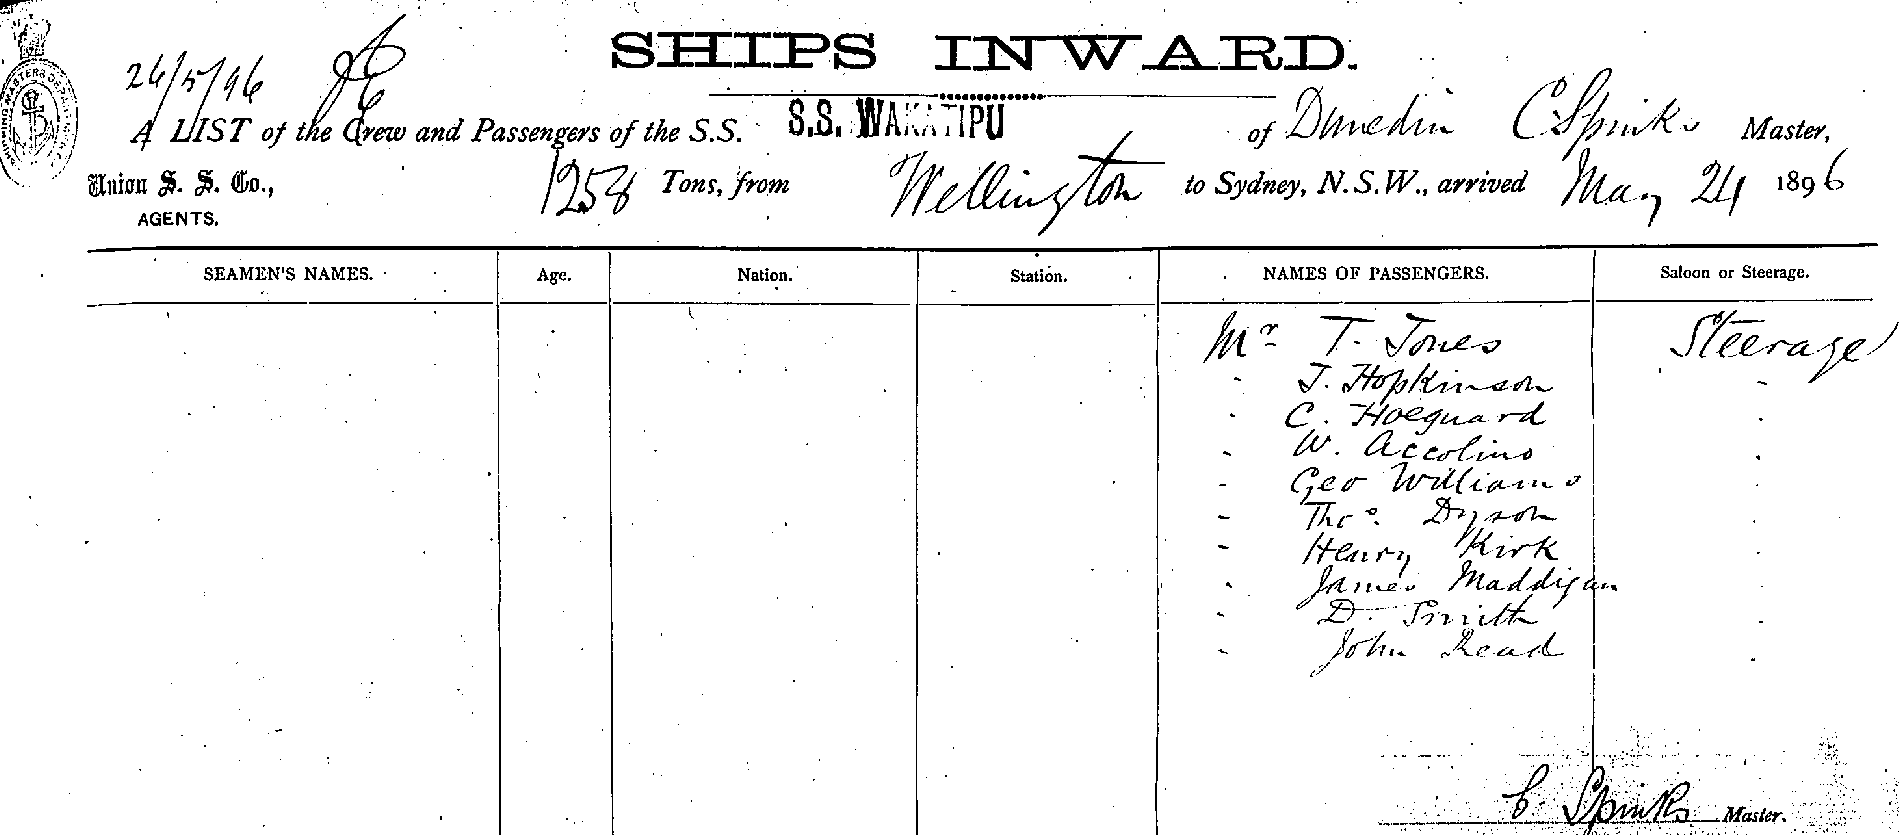 SHIPS INWARD.
26/5/96
A LIST of the Crew and Passengers of the S.S. S.S. WAKATIPU of Dunedin C Spinks Master,
Union S. S. Co., 1258 Tons, from Wellington to Sydney, N.S.W., arrived May 24 1896
AGENTS.
SEAMEN'S NAMES. Age. Nation. Station. NAMES OF PASSENGERS. Saloon or Steerage.
Mr T. Jones Steerage
" J. Hopkinson "
" C. Hoeguard "
" W. Accolino "
" Geo Williams "
" Thos. Dyson "
" Henry Kirk "
" James Maddigan "
" D. Smith "
" John Read "
C. Spinks Master.